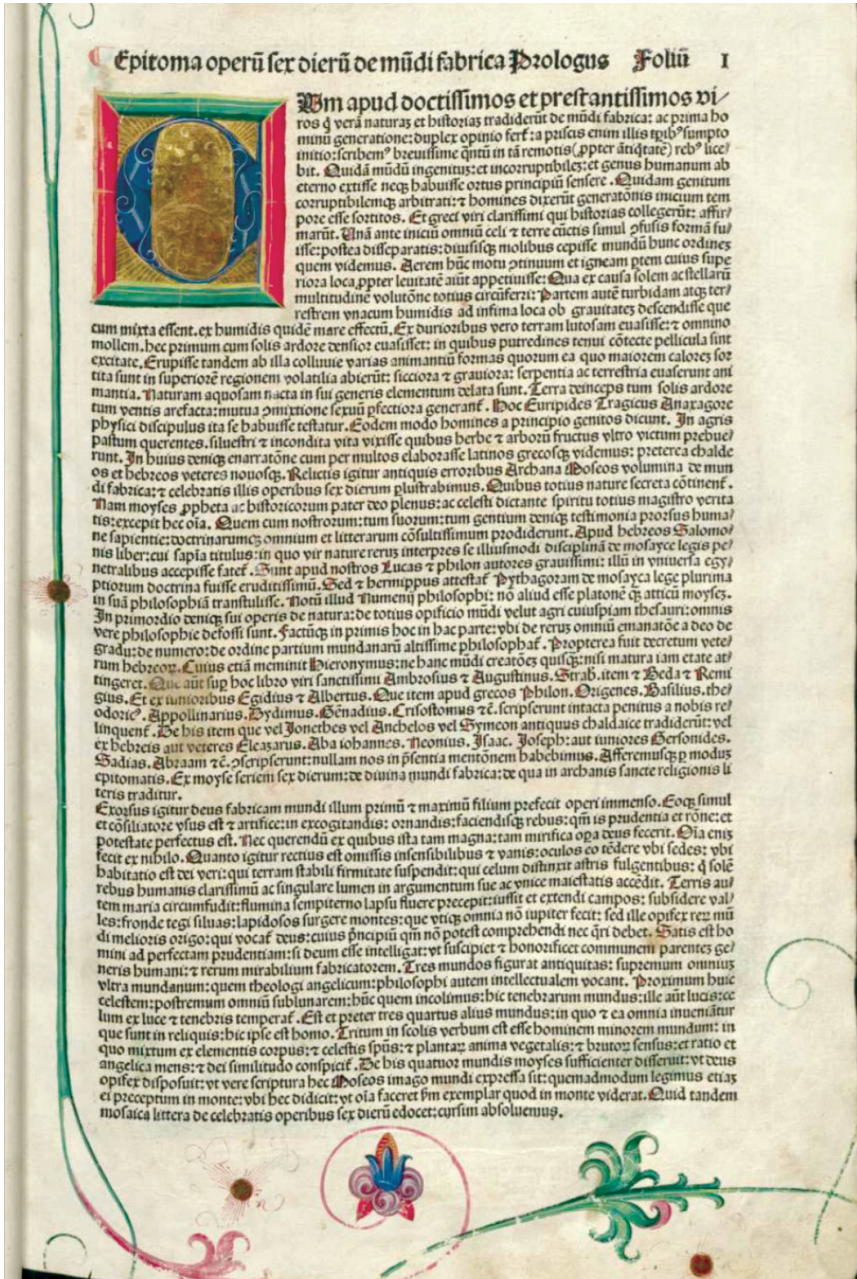 Epitoma operū sex dierū de mūdi fabrica Prologus Foliū I
QUm apud doctissimos et prestantissimos vi
ros q̄ verā naturaꝫ et historiaꝫ tradiderūt de mūdi fabrica: ac prima ho
minū generatione: duplex opinio ferť: a priscis enim illis tꝑibꝰ sumpto
initio: scribemꝰ brevissime q̄ntū in tā remotis (ꝓpter ātiq̄tatē) rebꝰ lice/
bit. Quidā mūdū ingenitus: et incorruptibileꝫ: et genus humanum ab
eterno extisse neqꝫ habuisse ortus principiū sensere. Quidam genitum
corruptibilemqꝫ arbitrati: ⁊ homines dixerūt generatōnis inicium tem
pore esse sortitos. Et greci viri clarissimi qui historias collegerūt: affir/
marūt. Unā ante iniciū omniū celi ⁊ terre cūctis simul ꝯfusis formā fu/
isse: postea disseparatis: diuisisqꝫ molibus cepisse mundū hunc ordineꝫ
quem videmus. Aerem hūc motu ꝯtinuum et igneam ꝑtem cuius supe
riora loca ꝓpter leuitatē aiūt appetiuisse: Qua ex causa solem ac stellarū
multitudinē volutōne totius circūferri: Partem autē turbidam atqꝫ ter/
restrem vnacum humidis ad infima loca ob grauitateꝫ descendisse que
cum mixta essent. ex humidis quidē mare effectū. Ex durioribus vero terram lutosam euasisse: ⁊ omnino
mollem. hec primum cum solis ardore densior euasisset: in quibus putredines tenui cōtecte pellicula sint
excitate. Erupisse tandem ab illa colluuie varias animantiū formas quorum ea quo maiorem caloreꝫ sor
tita sunt in superiorē regionem volatilia abierūt: sicciora ⁊ grauiora: serpentia ac terrestria euaserunt ani
mantia. Naturam aquosam nacta in sui generis elementum delata sunt. Terra deinceps tum solis ardore
tum ventis arefacta: mutua ꝯmixtione sexuū ꝑfectiora generanť. Hoc Euripides Tragicus Anaxagore
physici discipulus ita se habuisse testatur. Eodem modo homines a principio genitos dicunt. In agris
pastum querentes. siluestri ⁊ incondita vita vixisse quibus herbe ⁊ arborū fructus vltro victum prebue/
runt. In huius deniqꝫ enarratōne cum per multos elaborasse latinos grecosqꝫ videmus: preterea chalde
os et hebreos veteres nouosqꝫ. Relictis igitur antiquis erroribus Archana Moseos volumina de mun
di fabrica: ⁊ celebratis illis operibus sex dierum ꝑlustrabimus. Quibus totius nature secreta cōtinenť.
Nam moyses ꝓpheta ac historicorum pater deo plenus: ac celesti dictante spiritu totius magistro verita
tis: excepit hec oīa. Quem cum nostrorum: tum suorum: tum gentium deniqꝫ testimonia prorsus huma/
ne sapientie: doctrinarumqꝫ omnium et litterarum cōsultissimum prodiderunt. Apud hebreos Salomo/
nis liber: cui sapīa titulus: in quo vir nature reruꝫ interpres se illiusmodi disciplinā de mosayce legis pe/
netralibus accepisse fateť. Sunt apud nostros Lucas ⁊ philon autores grauissimi: illū in vniuersa egy/
ptiorum doctrina fuisse eruditissimū. Sed ⁊ hermippus attestať Pythagoram de mosayca lege plurima
in suā philosophiā transtulisse. Notū illud Numenij philosophi: nō aliud esse platonē qꝫ atticū moyseꝫ.
In primordio deniqꝫ sui operis de natura: de totius opificio mūdi velut agri cuiuspiam thesauri: omnis
vere philosophie defossi sunt. Factūqꝫ in primis hoc in hac parte: vbi de reruꝫ omniū emanatōe a deo de
gradu: de numero: de ordine partium mundanarū altissime philosophať. Propterea fuit decretum vete/
rum hebreoꝝ. Cuius etiā meminit Hieronymus: ne hanc mūdi creatōeꝫ quisqꝫ: nisi matura iam etate at/
tingeret. Que aūt suꝑ hoc libro viri sanctissimi Ambrosius ⁊ Augustinus. Strab. item ⁊ Beda ⁊ Remi
gius. Et ex iunioribus Egidius ⁊ Albertus. Que item apud grecos Philon. Origenes. Basilius. the/
odoricꝰ. Appollinarius. Dydimus. Gēnadius. Crisostomus ⁊ē. scripserunt intacta penitus a nobis re/
linquenť. De his item que vel Jonethes vel Anchelos vel Symeon antiquus chaldaice tradiderūt: vel
ex hebreis aut veteres Eleazarus. Aba iohannes. Neonius. Isaac. Joseph: aut iuniores Gersonides.
Sadias. Abraam ⁊ē. ꝯscripserunt: nullam nos in p̄sentia mentōnem habebimus. Afferemusqꝫ ꝑ moduꝫ
epitomatis. Ex moyse seriem sex dierum: de diuina mundi fabrica: de qua in archanis sancte religionis li
teris traditur.
Exorsus igitur deus fabricam mundi illum primū ⁊ maximū filium prefecit operi immenso. Eoqꝫ simul
et cōsiliatore vsus est ⁊ artifice: in excogitandis: ornandis: faciendisqꝫ rebus: qm̄ is prudentia et rōne: et
potestate perfectus est. Nec querendū ex quibus ista tam magna: tam mirifica oꝑa deus fecerit. Oīa eniꝫ
fecit ex nihilo. Quanto igitur rectius est omissis insensibilibus ⁊ vanis: oculos eo tēdere vbi sedes: vbi
habitatio est dei veri: qui terram stabili firmitate suspendit: qui celum distinxit astris fulgentibus: q̄ solē
rebus humanis clarissimū ac singulare lumen in argumentum sue ac vnice maiestatis accēdit. Terris au/
tem maria circumfudit: flumina sempiterno lapsu fluere precepit: iussit et extendi campos: subsidere val/
les: fronde tegi siluas: lapidosos surgere montes: que vtiqꝫ omnia nō iupiter fecit: sed ille opifex reꝝ mū
di melioris origo: qui vocať deus: cuius p̄ncipiū qm̄ non potest comprehendi nec q̄ri debet. Satis est ho
mini ad perfectam prudentiam: si deum esse intelligat: vt suscipiet ⁊ honorificet communem parenteꝫ ge/
neris humani: ⁊ rerum mirabilium fabricatorem. Tres mundos figurat antiquitas: supremum omniuꝫ
vltra mundanum: quem theologi angelicum: philosophi autem intellectualem vocant. Proximum huic
celestem: postremum omniū sublunarem: hūc quem incolimus: hic tenebrarum mundus: ille aūt lucis: ce
lum ex luce ⁊ tenebris temperať. Est et preter tres quartus alius mundus: in quo ⁊ ea omnia inueniātur
que sunt in reliquis: hic ipse est homo. Tritum in scolis verbum est esse hominem minorem mundum: in
quo mixtum ex elementis corpus: ⁊ celestis spūs: ⁊ plantaꝝ anima vegetalis: ⁊ brutoꝝ sensus: et ratio et
angelica mens: ⁊ dei similitudo conspiciť. De his quatuor mundis moyses sufficienter disseruit: vt deus
opifex disposuit: vt vere scriptura hec Moseos imago mundi expressa sit: quemadmodum legimus etiaꝫ
ei preceptum in monte: vbi hec didicit: vt oīa faceret ẜm exemplar quod in monte viderat. Quid tandem
mosaica littera de celebratis operibus sex dierū edocet: cursim absoluemus.